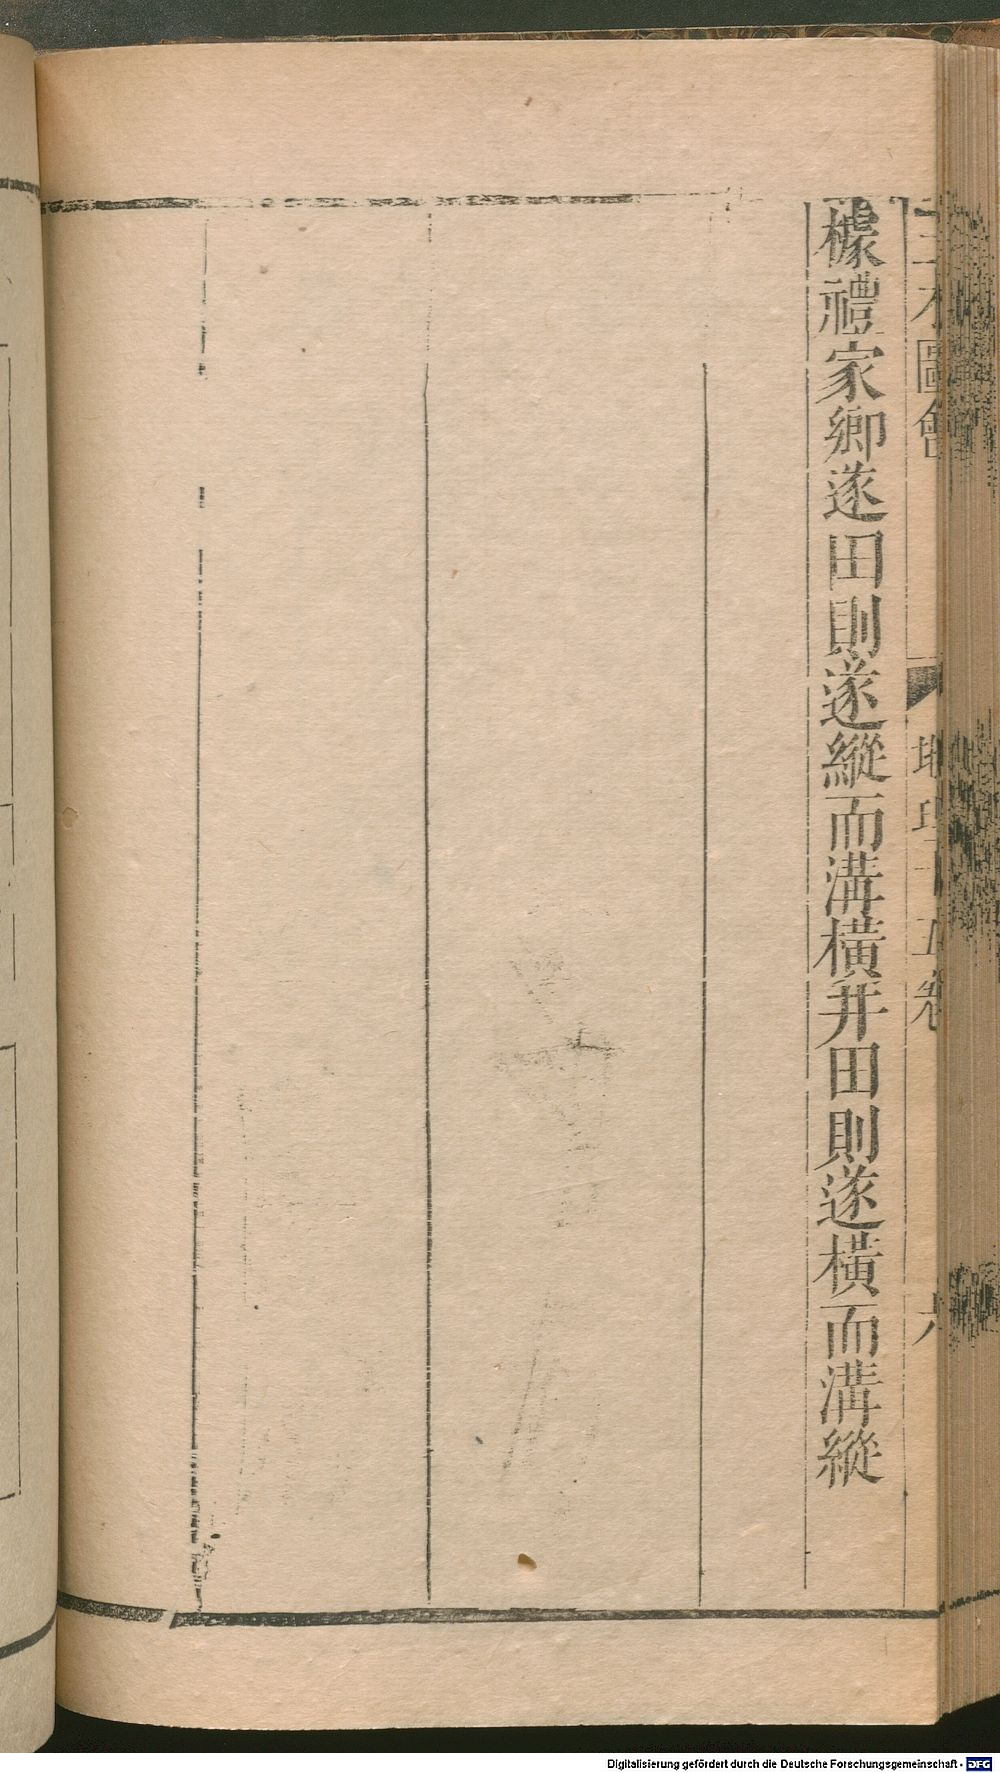 三才圖會 地理十五卷
據禮家鄉遂田則遂縱而溝橫井田則遂橫而溝縱
Digitalisierung gefördert durch die Deutsche Forschungsgemeinschaft - DFG